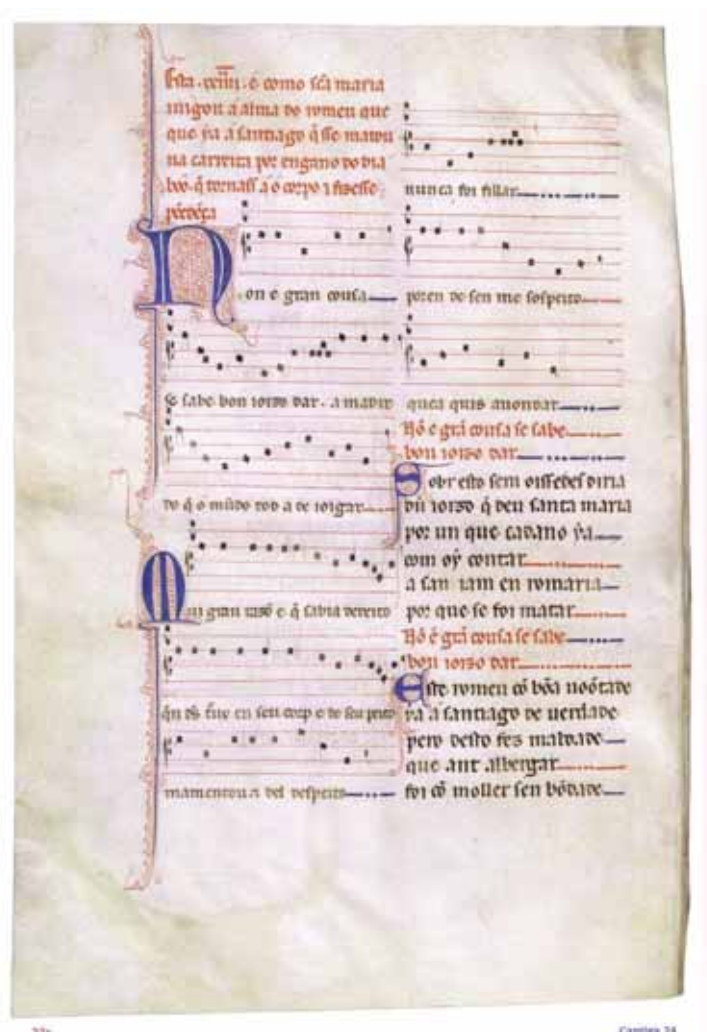 Esta .xxiiii. é como sc̃a maria
iuigou a alma do romeu que
que ya a santiago q̃ sse matou
na carreira por engano do dia
boo. q̃ tornass a o corpo ⁊ fezesse
pẽedẽça
Non e gran cousa
se sabe bon ioyzo dar. a madre
do q̃ o mũdo tod a de ioigar
Mui gran razõ e q̃ sabia dereito
q̃n ds̃ troue en seu corp e de seu peito
mamentou a del despeito
nunca foi fillar
poren de sen me sospeito
quea quis auondar
Nõ é grã cousa se sabe
bon ioyzo dar
Sobr esto sem oissedes diria
dũ ioyzo q̃ deu santa maria
por un que cadano ya
com oý contar
a san iam en romaria
por que se foi matar
Nõ é grã cousa se sabe
bon ioyzo dar
Este romeu cõ bõa uoõtade
ya a santiago de uerdade
pero desto fez maldade
que ant albergar
foi cõ moller sen bõdade
Cantiga 24